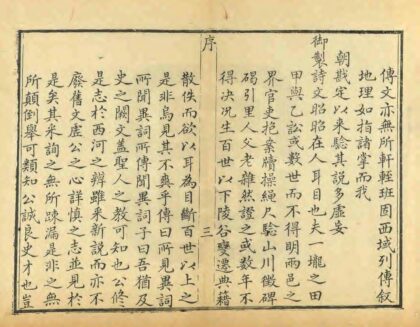 傳文亦無所軒輊班固西域列傳叙
地理如指諸掌而我
朝戡定以来驗其說多虛妄
御製詩文昭昭在人耳目也夫一壠之田
甲與乙訟或數世而不得明兩邑之
界官吏抱案牘操繩尺驗山川徵碑
碣引里人父老雜然證之或數年不
得决况生百世以下陵谷變遷典籍
序
三
散佚而欲以耳為目斷百世以上之
是非烏見其不爽乎傳曰所見異詞
所聞異詞所傳聞異詞子曰吾猶及
史之闕文蓋聖人之教可知也公修
是志於西河之辨雖采新說而亦不
廢舊文虛公之心詳慎之志並見於
是矣其采詢之無所疎漏是非之無
所顛倒舉可類知公誠良史才也豈